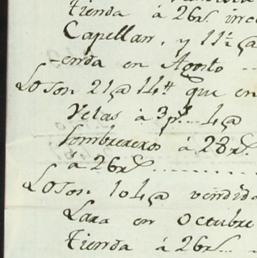 Tienda á 26rs. inc
Capellan, y 11@ ça
enda en Agosto
Loson. 21@ 14tt que en
Velas á 3ps. 4@
Sombrereros á 28rs.
á 26rs.
Loson. 104@ vendida
Lara en Octubre
Tienda á 26rs.